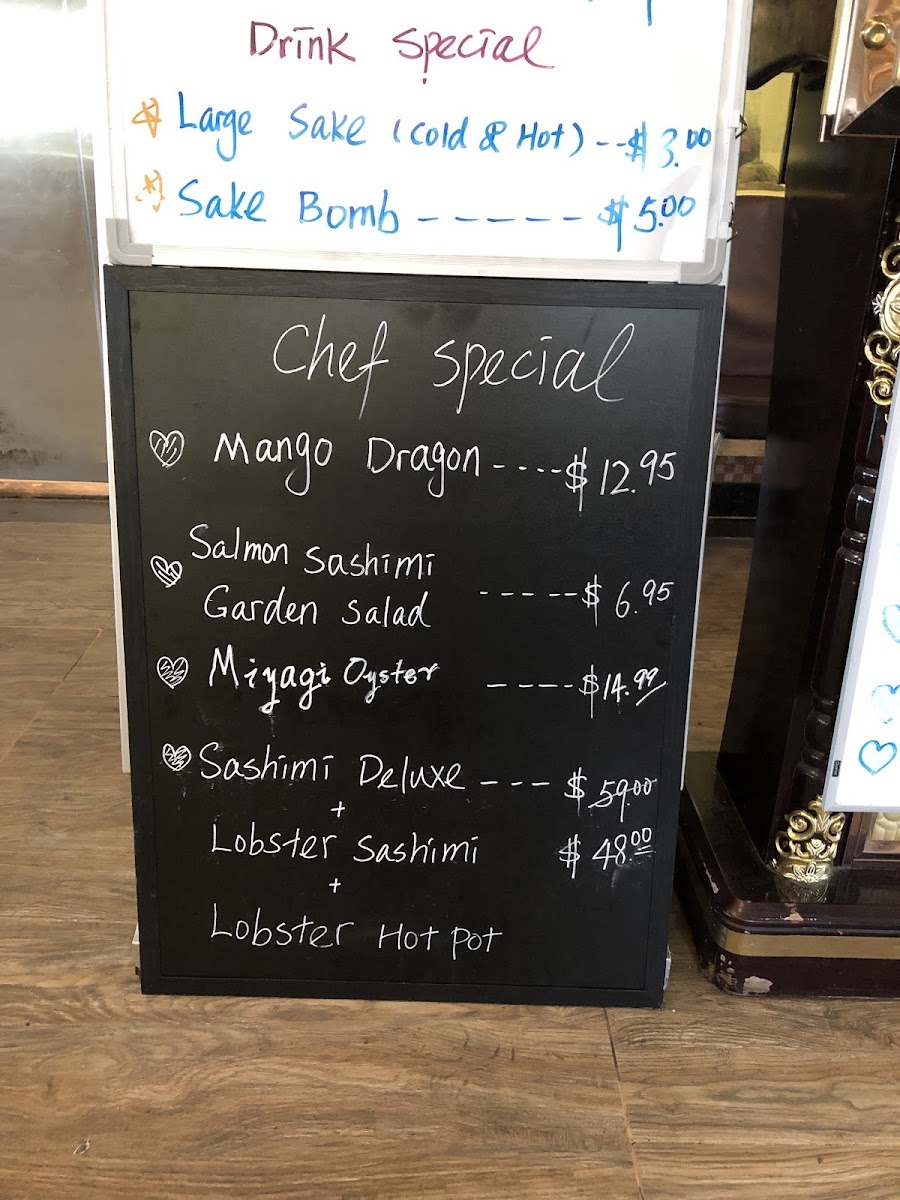 Drink Special
Large Sake (Cold & Hot) --$ 3.00
Sake Bomb ------ $5.00
Chef Special
Mango Dragon ----$ 12.95
Salmon Sashimi
Garden Salad ----- $ 6.95
Miyagi Oyster ----$14.99
Sashimi Deluxe --- $ 59.00
+
Lobster Sashimi $ 48.00
+
Lobster Hot Pot